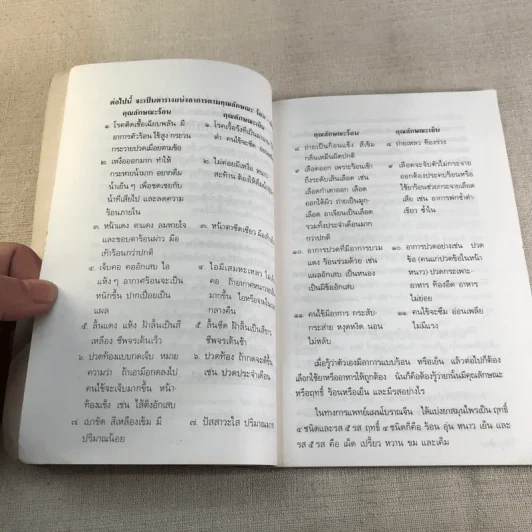 ต่อไปนี้ จะเป็นตารางแบ่งอาการตามคุณลักษณะ ร้อน
คุณลักษณะร้อน
๑. โรคติดเชื้อเฉียบพลัน มี
อาการตัวร้อน ใช้สูง กระวน
กระวายปวดเมื่อยตามข้อ
๒. เหงื่ออกมาก ทำให้
กระหายน้ำมาก อยากดื่ม
น้ำเย็น ๆ เพื่อชดเชยกับ
น้ำที่เสียไป และลดความ
ร้อนภายใน
๓. หน้าแดง ตนแดง ลมหายใจ
และขอบตาร้อนผ่าว มือ
เท้าร้อนกว่าปกติ
๔. เจ็บคอ คออักเสบ ไอ
แห้ง ๆ อากาศร้อนจะเป็น
หนักขึ้น ปากเปื่อยเป็น
แผล
๕. ลิ้นแดง แห้ง ฝ้าลิ้นเป็นสี
เหลือง ชีพจรเต้นเร็ว
๖. ปวดท้องแบบกดเจ็บ หมาย
ความว่า ถ้าเอามือกดลงไป
คนไข้จะเจ็บมากขึ้น หน้า-
ท้องแข็ง เช่น ไส้ติ่งอักเสบ
๗. เบาขัด สีเหลืองเข้ม มี
ปริมาณน้อย
คุณลักษณะเย็น
๑. โรคเรื้อรังที่เป็นมานาน
ต่ำ คนไข้จะซึม
๒. ไม่ค่อยมีเหงื่อ
สะท้าน ต้องใส่เสื้อ
๓. หน้าตาซีดเซียว มือ
๔. ไอมีเสมหะเหลว
คอ ถ้าอากาศหนาว
มากขึ้น ไอหรือจาม
กลางคืน
๕. ลิ้นซีด ฝ้าลิ้นเป็นสีขาว
ชีพจรเต้นช้า
๖. ปวดท้อง ถ้ากดจะดีขึ้น
เช่น ปวดประจำเดือน
๗. ปัสสาวะใส ปริมาณมาก
คุณลักษณะร้อน
๘. ถ่ายเป็นก้อนแข็ง สีเข้ม
กลิ่นเหม็นผิดปกติ
๙. เลือดออก เพราะร้อนเข้า
ถึงระดับเส้นเลือด เช่น
เลือดกำเดาออก เลือด
ออกใต้ผิว ถ่ายเป็นมูก-
เลือด อาเจียนเป็นเลือด
รวมทั้งประจำเดือนมาก
กว่าปกติ
๑๐. อาการปวดที่มีอาการบวม
แดง ร้อนรวมด้วย เช่น
แผลอักเสบ เป็นหนอง
เป็นฝีข้ออักเสบ
๑๑. คนไข้มีอาการ กระสับ-
กระส่าย หงุดหงิด นอน
ไม่หลับ
คุณลักษณะเย็น
๘. ถ่ายเหลว ท้องร่วง
๙. เลือดจะจับตัวไม่กระจาย
ออกต้องประคบร้อนหรือ
ใช้ยาร้อนช่วยกระจายเลือด
เสีย เช่น อาการฟกช้ำดำ
เขียว ช้ำใน
๑๐. อาการปวดอย่างเช่น ปวด
ข้อ (คนแก่ปวดข้อในหน้า
หนาว) ปวดกระเพาะ-
อาหาร ท้องอืด อาหาร
ไม่ย่อย
๑๑. คนไข้จะซึม อ่อนเพลีย
ไม่มีแรง
เมื่อรู้ว่าตัวเองมีอาการแบบร้อน หรือเย็น แล้วต่อไปก็ต้อง
เลือกใช้ยาหรืออาหารให้ถูกต้อง นั่นก็คือต้องรู้ว่ายานั้นมีคุณลักษณะ
หรือฤทธิ์ ร้อนหรือเย็น และมีรสอย่างไร
ในทางการแพทย์แผนโบราณจีน ได้แบ่งยาสมุนไพรเป็น ฤทธิ์
๔ ชนิดและรส ๕ รส ฤทธิ์ ๔ ชนิดก็คือ ร้อน อุ่น หนาว เย็น และ
รส ๕ รส คือ เผ็ด เปรี้ยว หวาน ขม และเค็ม